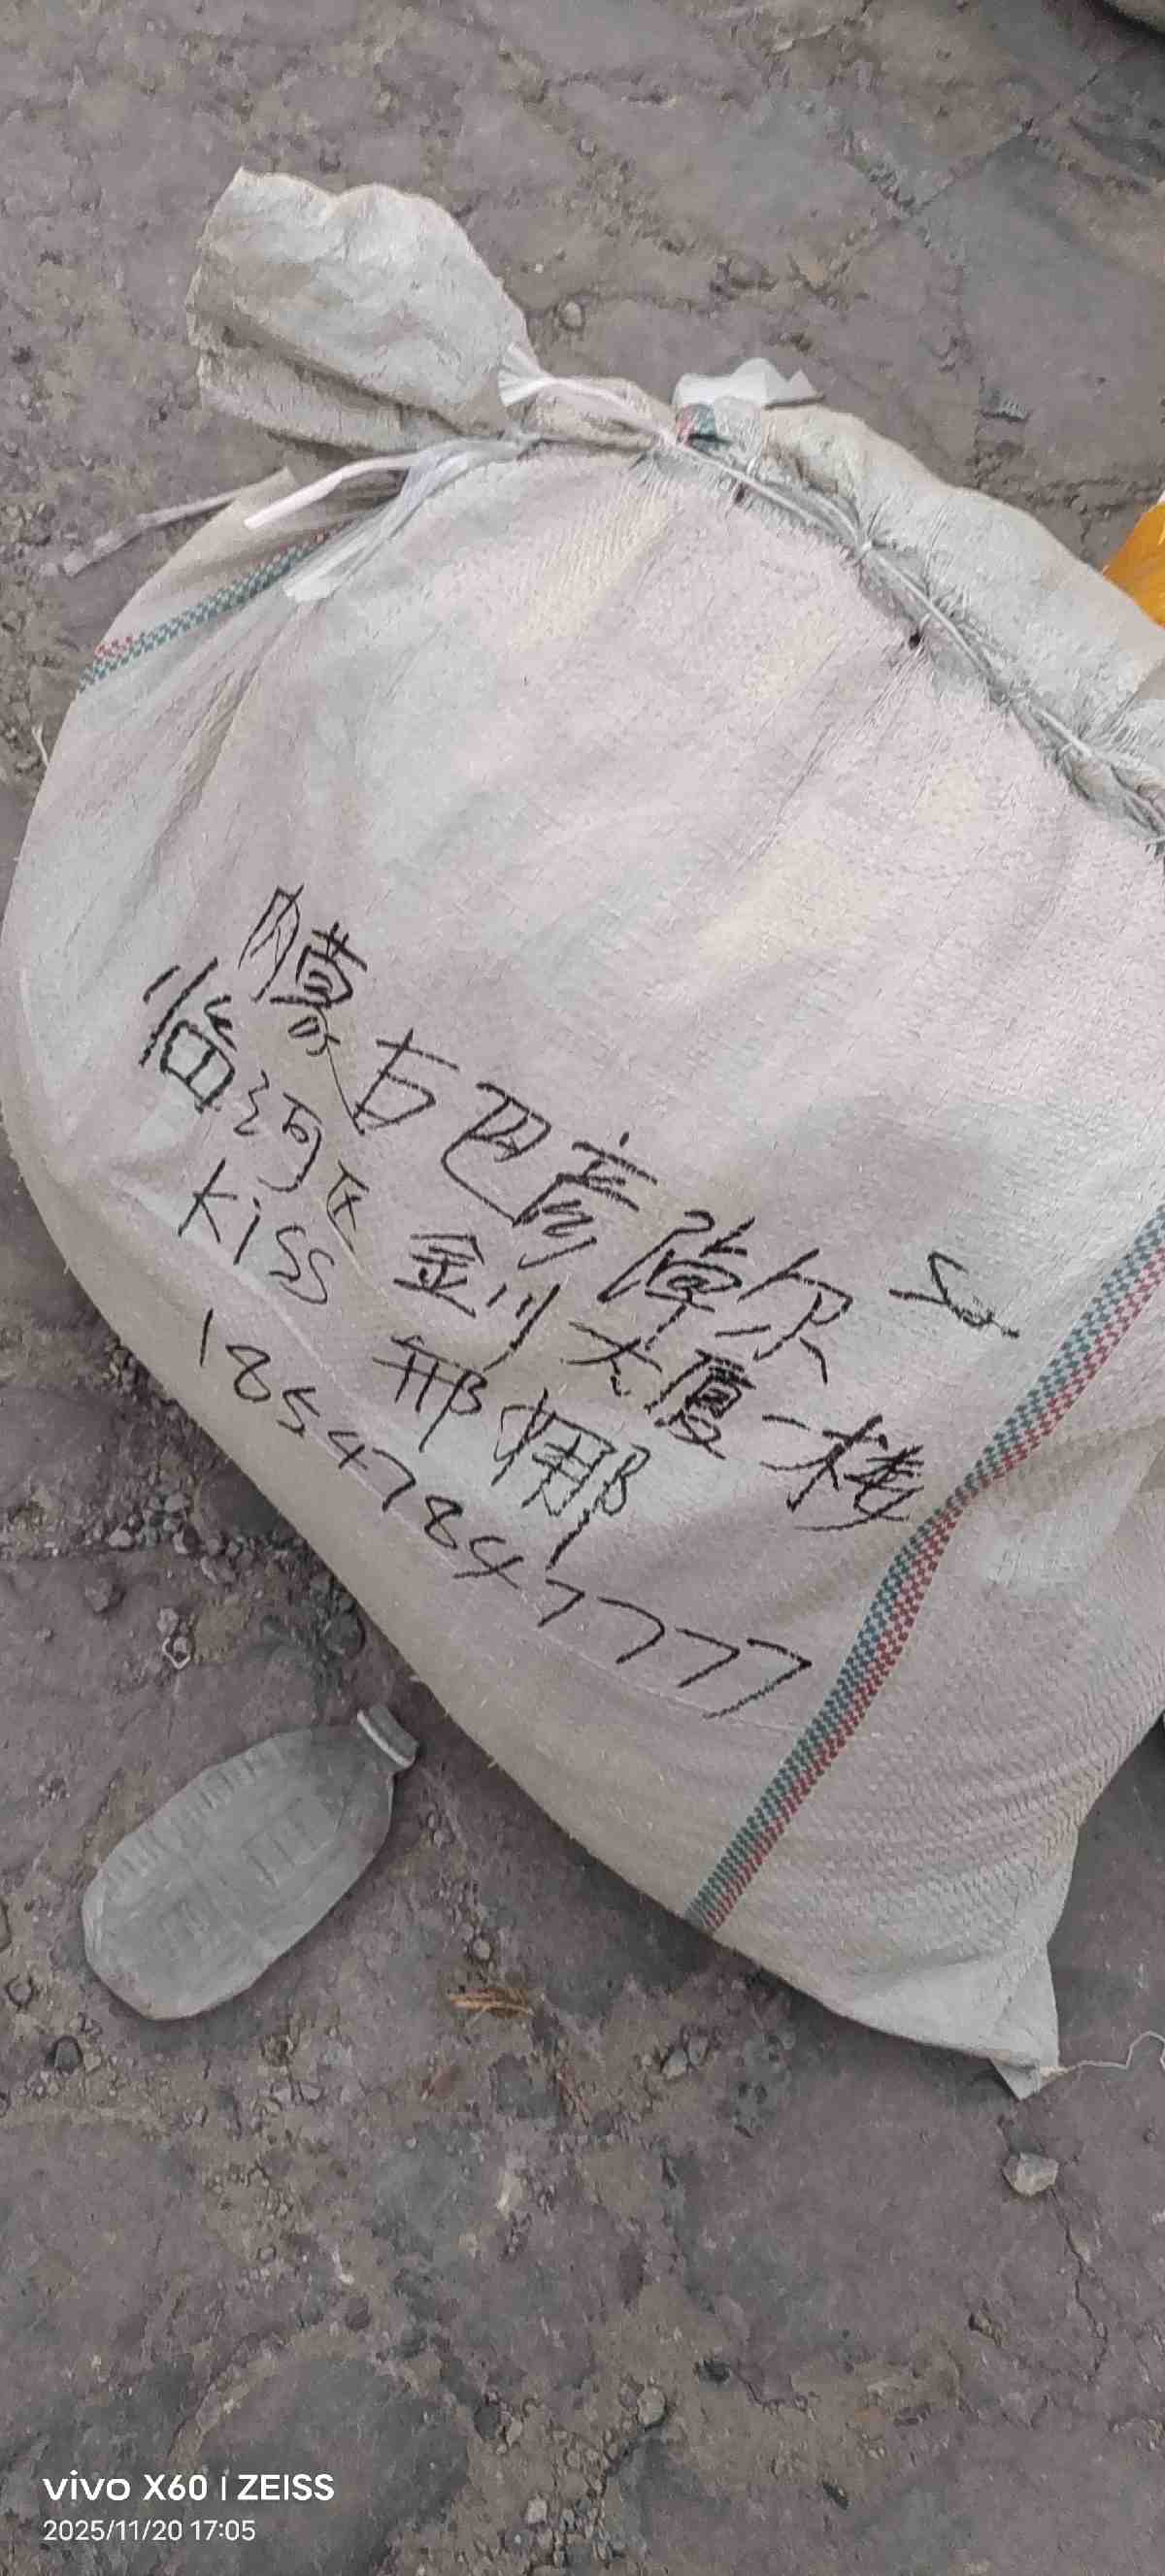 内蒙古巴彦淖尔市
临河区金川大厦一楼
Kiss 邢娜
18547847777
vivo X60 | ZEISS
2025/11/20 17:05